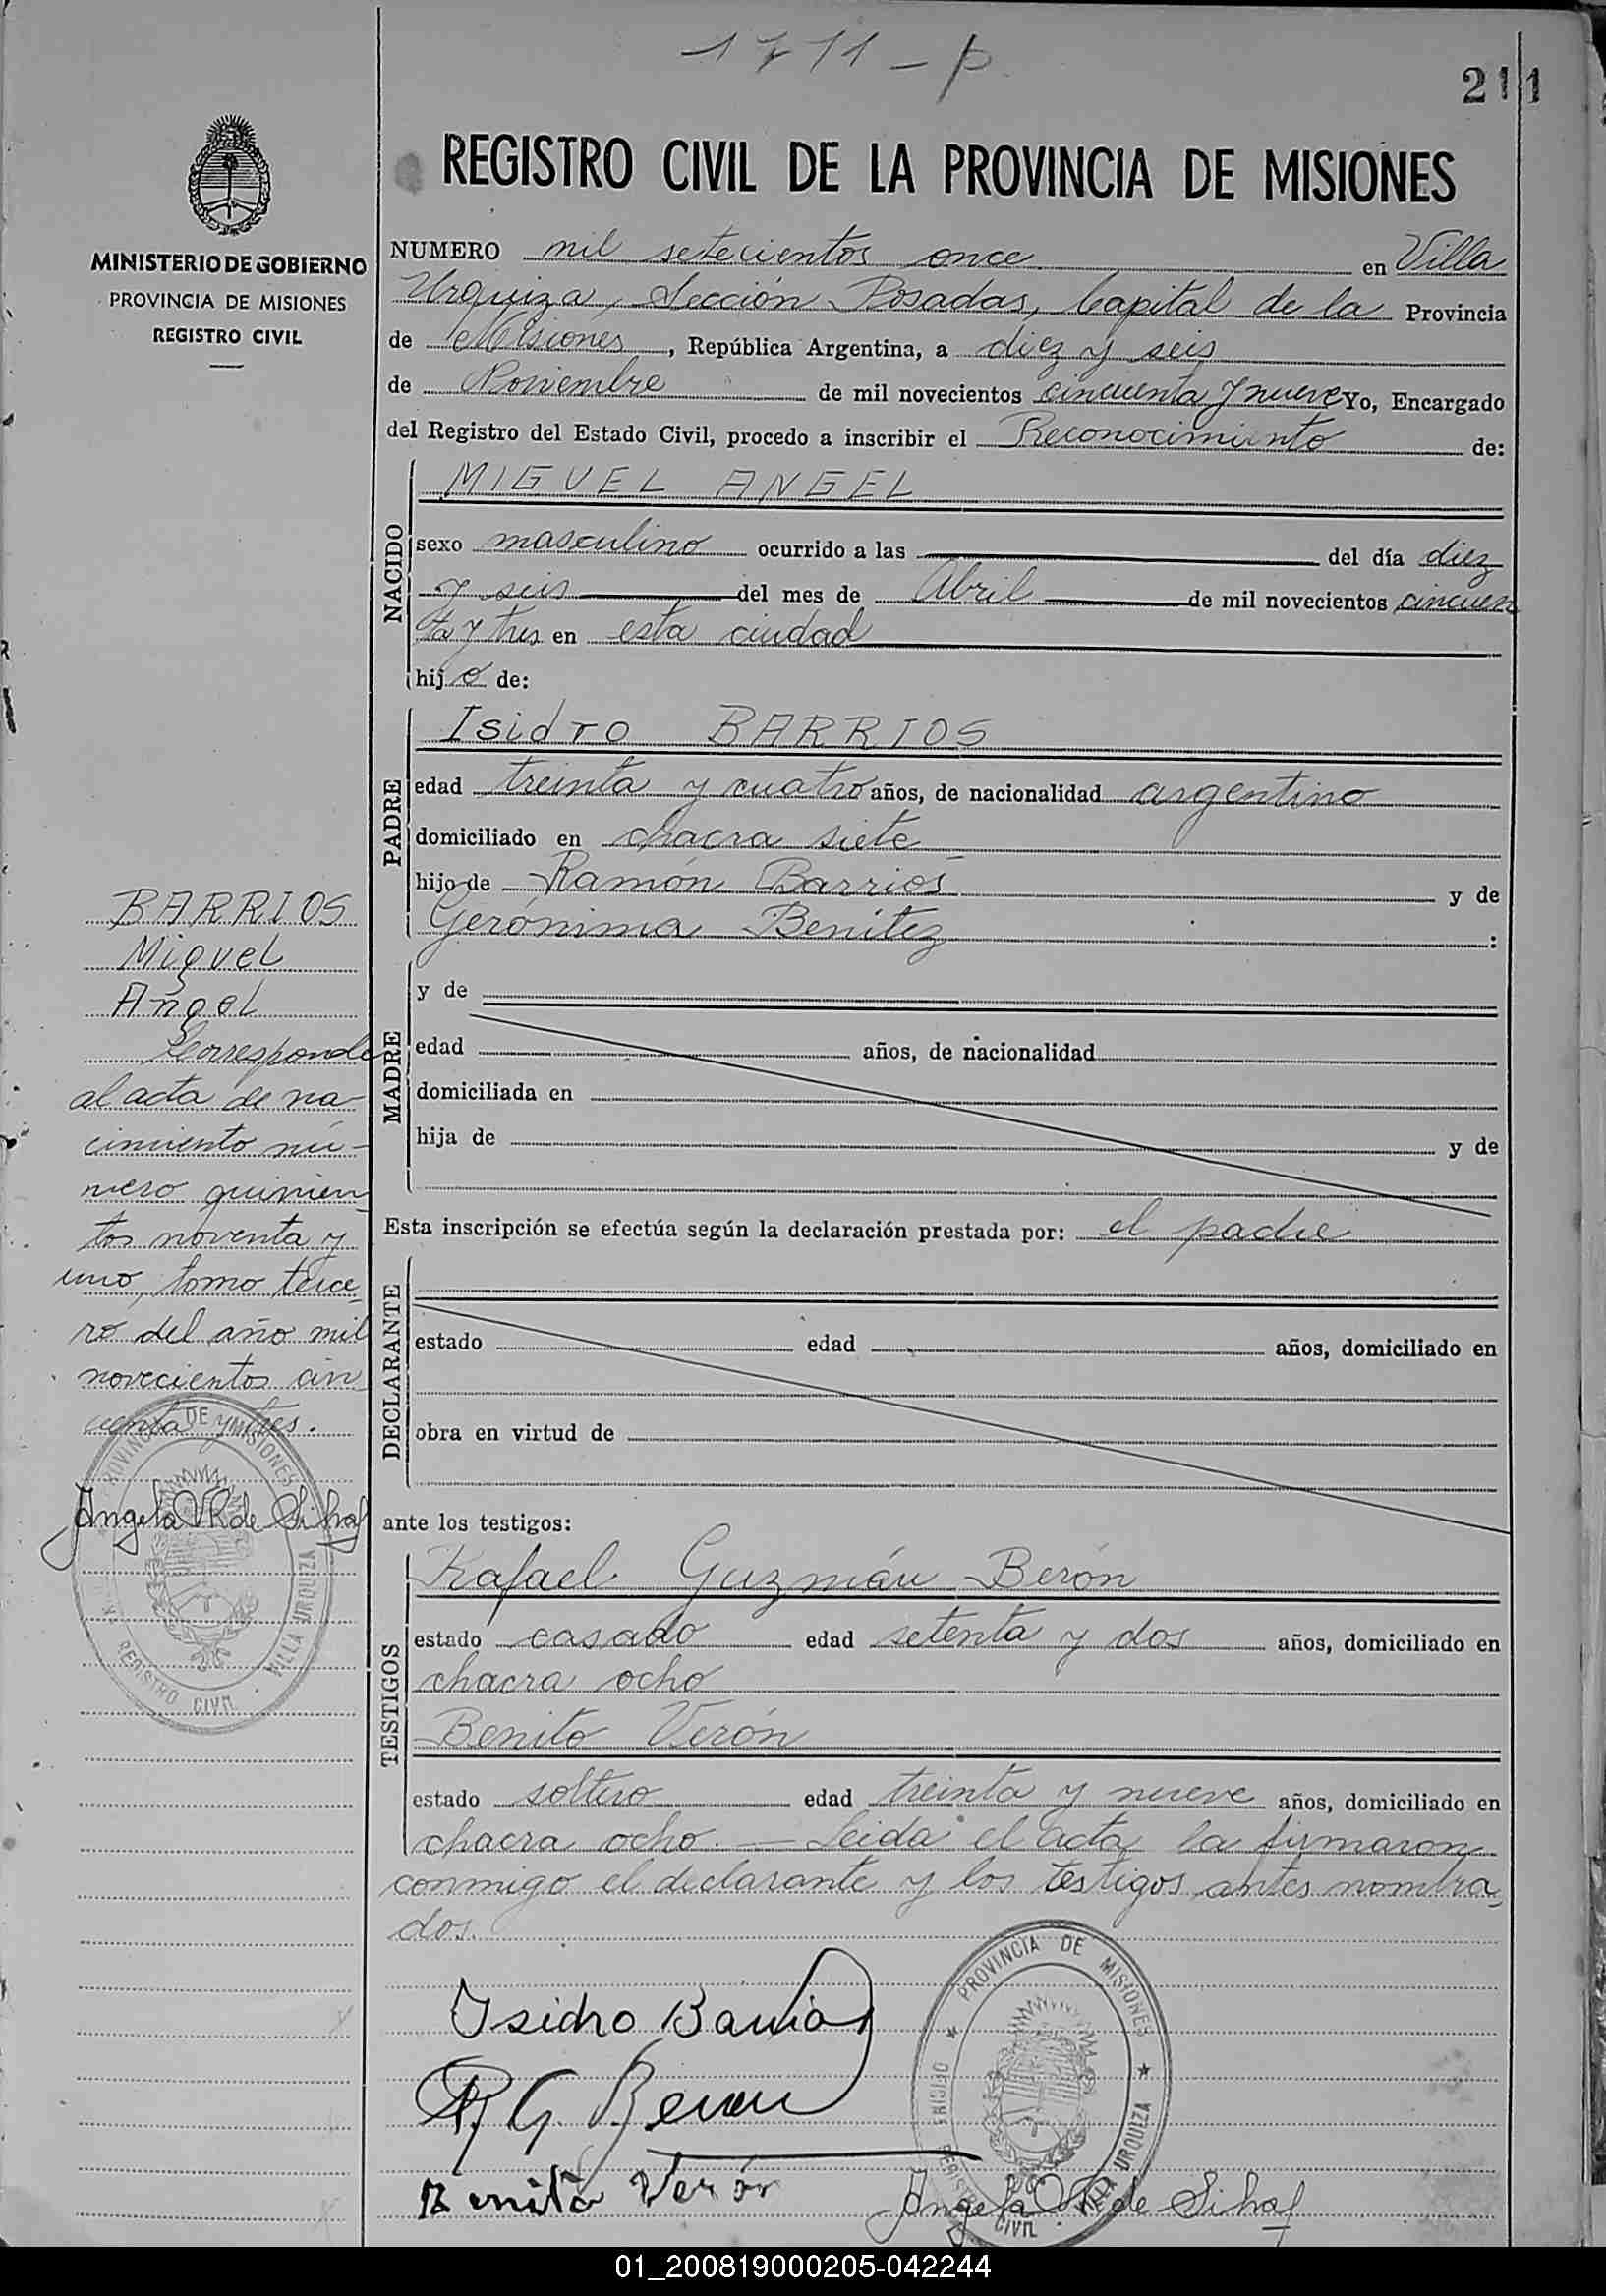 1711 - p.
211
REGISTRO CIVIL DE LA PROVINCIA DE MISIONES
MINISTERIO DE GOBIERNO
PROVINCIA DE MISIONES
REGISTRO CIVIL
NUMERO mil setecientos once en Villa
Urquiza, Sección Posadas, Capital de la Provincia
de Misiones, República Argentina, a diez y seis
de Noviembre de mil novecientos cincuenta y nueve Yo, Encargado
del Registro del Estado Civil, procedo a inscribir el Reconocimiento de:
NACIDO
MIGUEL ANGEL
sexo masculino ocurrido a las del día diez
y seis del mes de Abril de mil novecientos cincuen
ta y tres en esta ciudad
hijo de:
PADRE
Isidro BARRIOS
edad treinta y cuatro años, de nacionalidad argentino
domiciliado en chacra siete
hijo de Ramón Barrios y de
Gerónima Benitez :
MADRE
y de
edad años, de nacionalidad
domiciliada en
hija de y de
Esta inscripción se efectúa según la declaración prestada por: el padre
DECLARANTE
estado edad años, domiciliado en
obra en virtud de
ante los testigos:
TESTIGOS
Rafael Guzmán Berón
estado casado edad setenta y dos años, domiciliado en
chacra ocho
Benito Verón
estado soltero edad treinta y nueve años, domiciliado en
chacra ocho. — Leida el acta la firmaron
conmigo el declarante y los testigos antes nombra
dos.
Isidro Barrios
R G. Beron
Benito Verón
Angela de Sihaf
PROVINCIA DE MISIONES
VILLA URQUIZA
CIVIL
BARRIOS
Miguel
Angel
Corresponde
al acta de na-
cimiento nú-
mero quinien
tos noventa y
uno, tomo terce
ro del año mil
novecientos cin
cuenta y tres.
Angela de Sihaf
DE MISIONES
VILLA URQUIZA
REGISTRO CIVIL
01_200819000205-042244